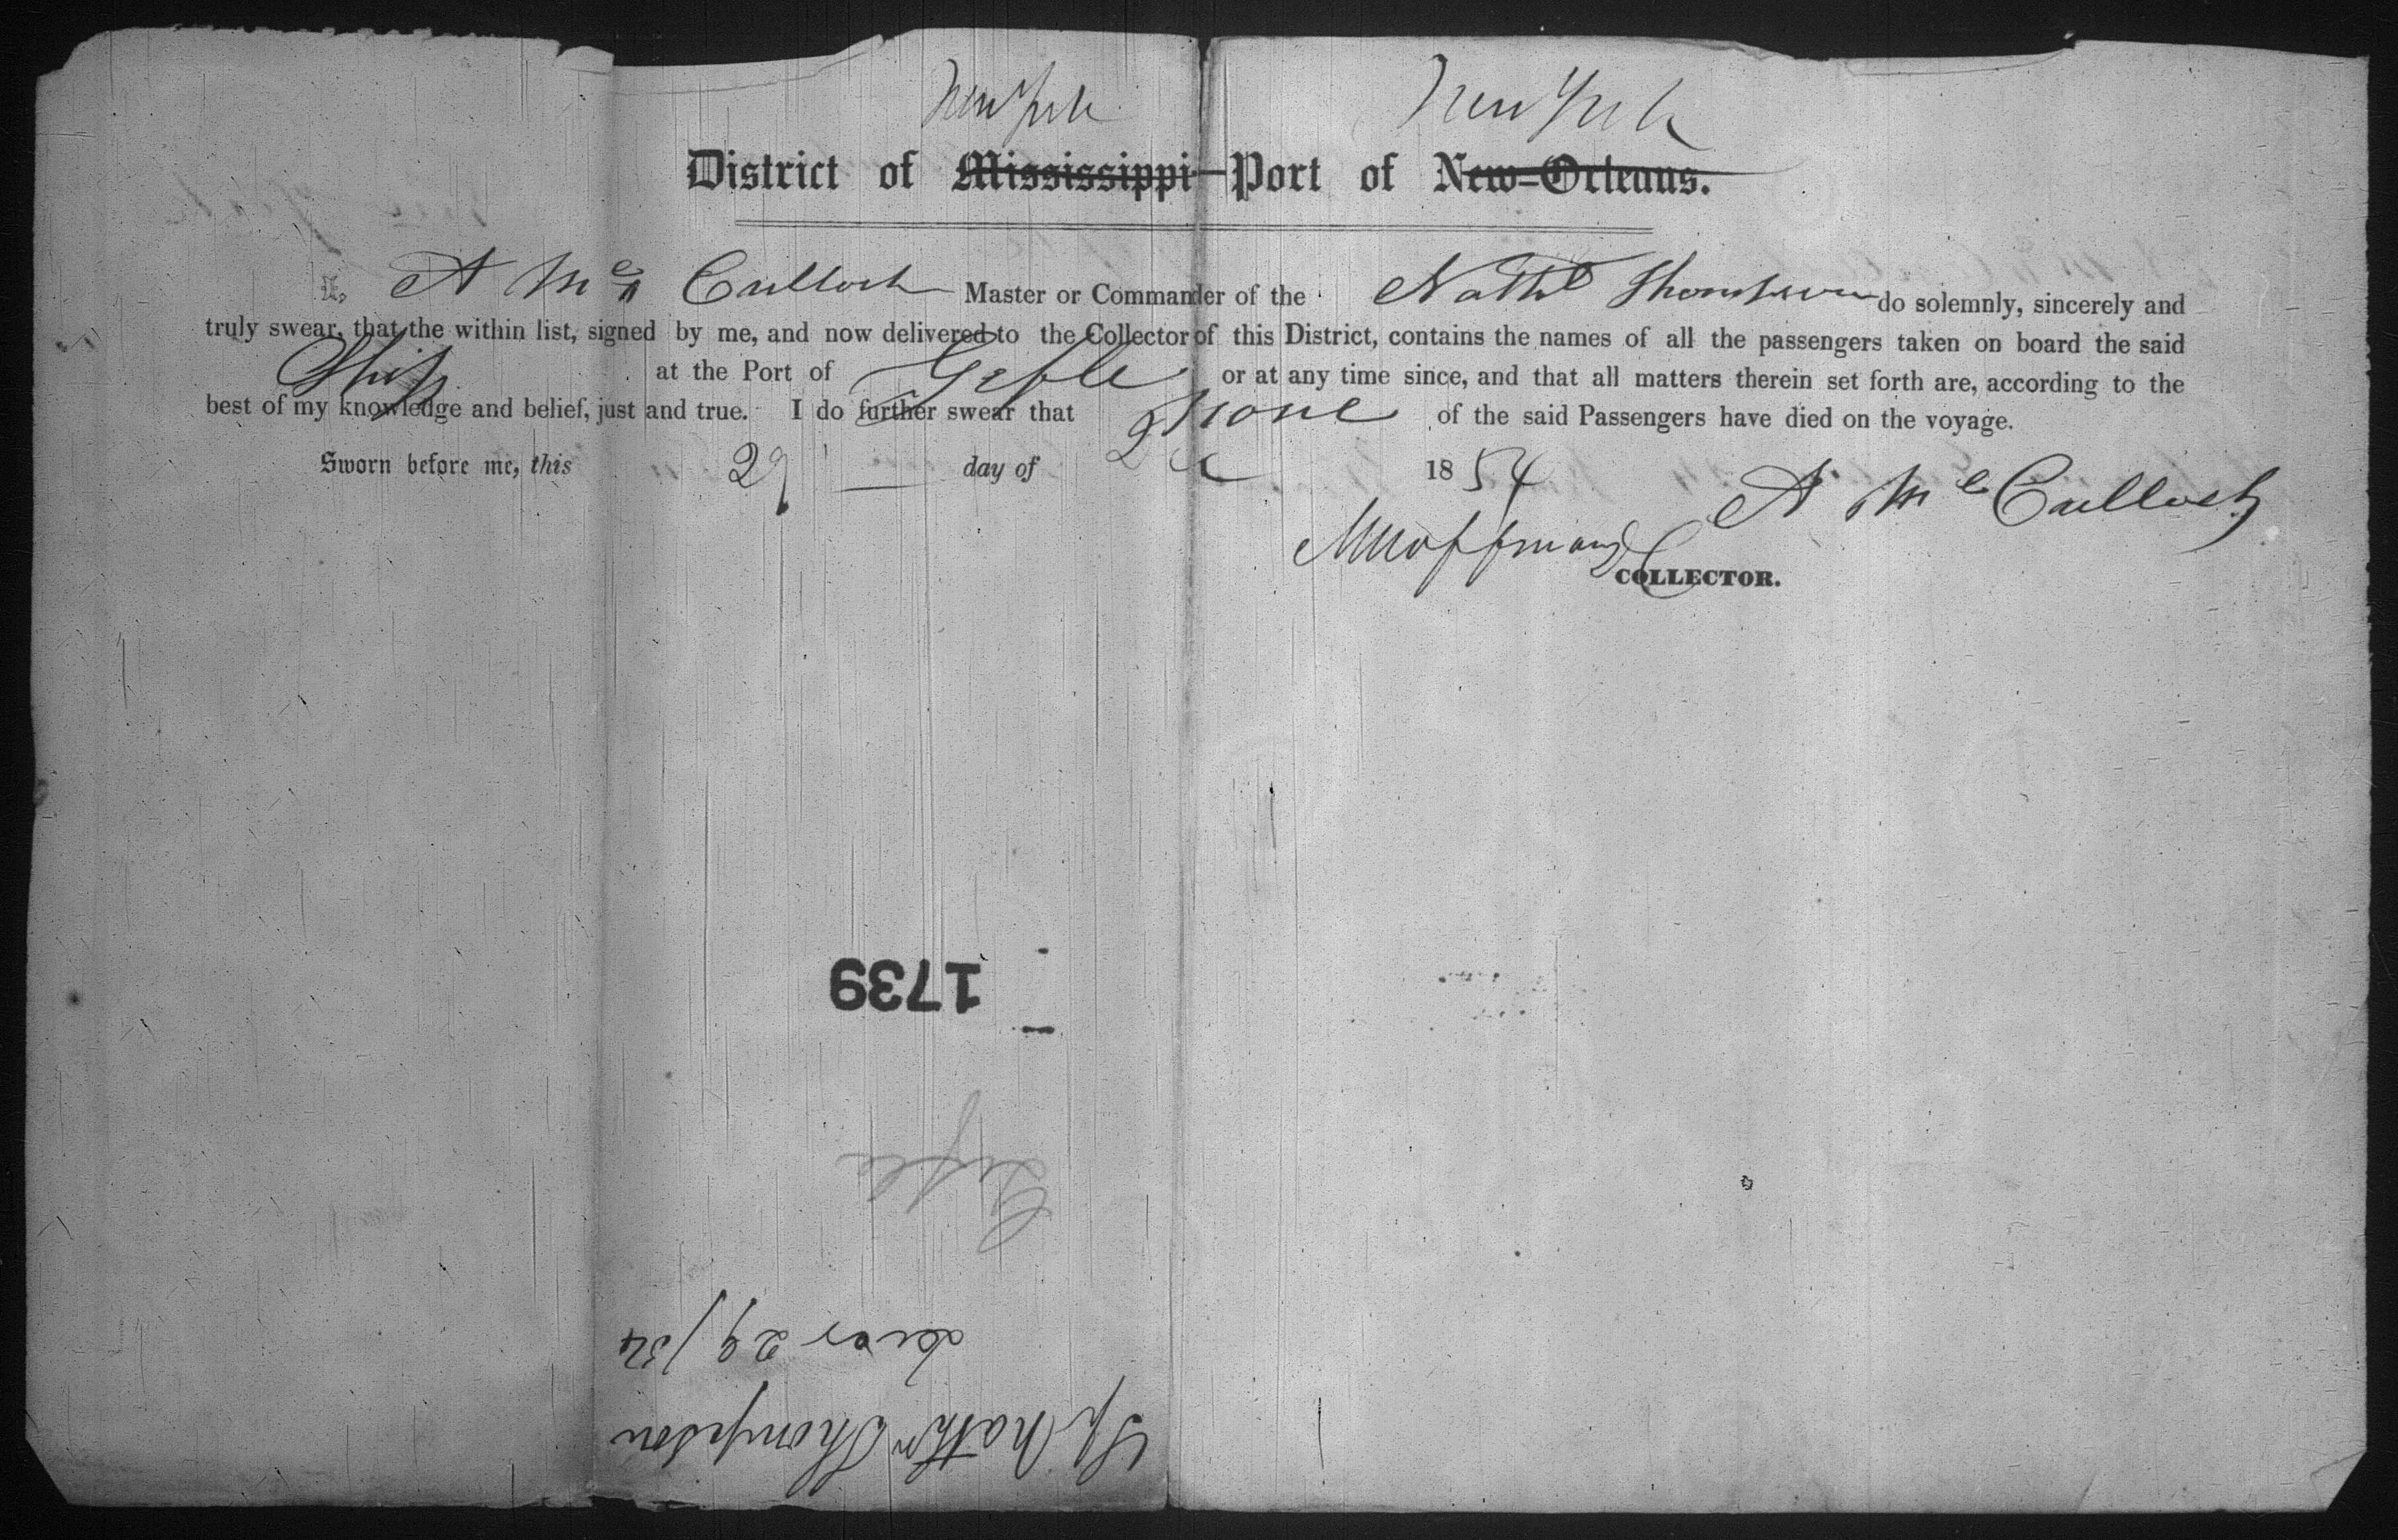 New York New York
District of Mississippi—Port of New-Orleans.
I, A Mc Culloch Master or Commander of the Nathl Thompson do solemnly, sincerely and
truly swear, that the within list, signed by me, and now delivered to the Collector of this District, contains the names of all the passengers taken on board the said
Ship at the Port of Gefle or at any time since, and that all matters therein set forth are, according to the
best of my knowledge and belief, just and true. I do further swear that None of the said Passengers have died on the voyage.
Sworn before me, this 29 day of 1854
A Mc Culloch
COLLECTOR.
1739
Gefle
29/54
Sp Nathn Thompson